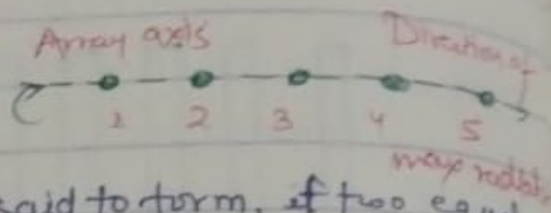 Array axis
Direction of
1 2 3 4 5
max radiat
said to form, if two equ